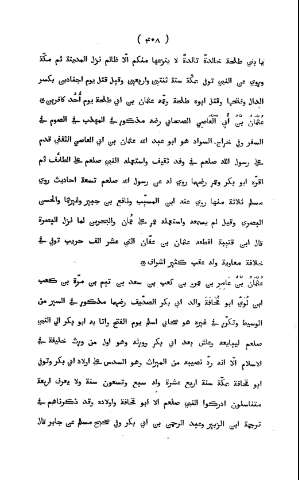 ( ٤٠٨ )
يا بني طلحة خالدة تالدة لا ينزعها منكم الا ظالم نزل المدينة ثم مكة
وروى عن النبي توفى بمكة سنة ثنتين واربعين وقيل قتل يوم اجنادين بكسر
الدال وفتحها وقتل ابوه طلحة وعمه عثمان بن ابي طلحة يوم أحد كافرين
عُثْمَان بْن أَبِي الْعَاصِي الصحابي رضه مذكور في المهذب في الصوم في
السفر وفي خراج السواد هو ابو عبد الله عثمان بن ابي العاصي الثقفي قدم
على رسول الله صلعم في وفد ثقيف واستعمله النبي صلعم على الطائف ثم
اقره ابو بكر وعمر رضهما روى له عن رسول الله صلعم تسعة احاديث روى
مسلم ثلاثة منها روى عنه ابن المسيّب ونافع بن جبير وغيرهما والحسن
البصري وقيل لم يسمعه واستعمله عمر على عُمان والبحرين ثم نزل البصرة
قال ابن قتيبة اقطعه عثمان بن عفان اثني عشر الف جريب توفي في
خلافة معاوية وله عقب كثير اشراف
عُثْمَان بْن عَامِر بن عمرو بن كعب بن سعد بن تيم بن مرة بن كعب
ابن لُوَيّ ابو قحافة والد ابي بكر الصدّيق رضهما مذكور في السير من
الوسيط وتكرّر في غيره هو صحابي اسلم يوم الفتح واتا به ابو بكر الى النبي
صلعم ليبايعه وعاش بعد ابي بكر وورثه وهو اول من ورث خليفة في
الاسلام الا انه ردّ نصيبه من الميراث وهو السدس على اولاد ابي بكر وتوفي
ابو قحافة بمكة سنة اربع عشرة وله سبع وتسعون سنة ولا يعرف اربعة
متناسلون ادركوا النبي صلعم الا ابو قحافة واولاده وقد ذكرناهم في
ترجمة ابن الزبير وعبد الرحمن بن ابي بكر وفي صحيح مسلم عن جابر قال